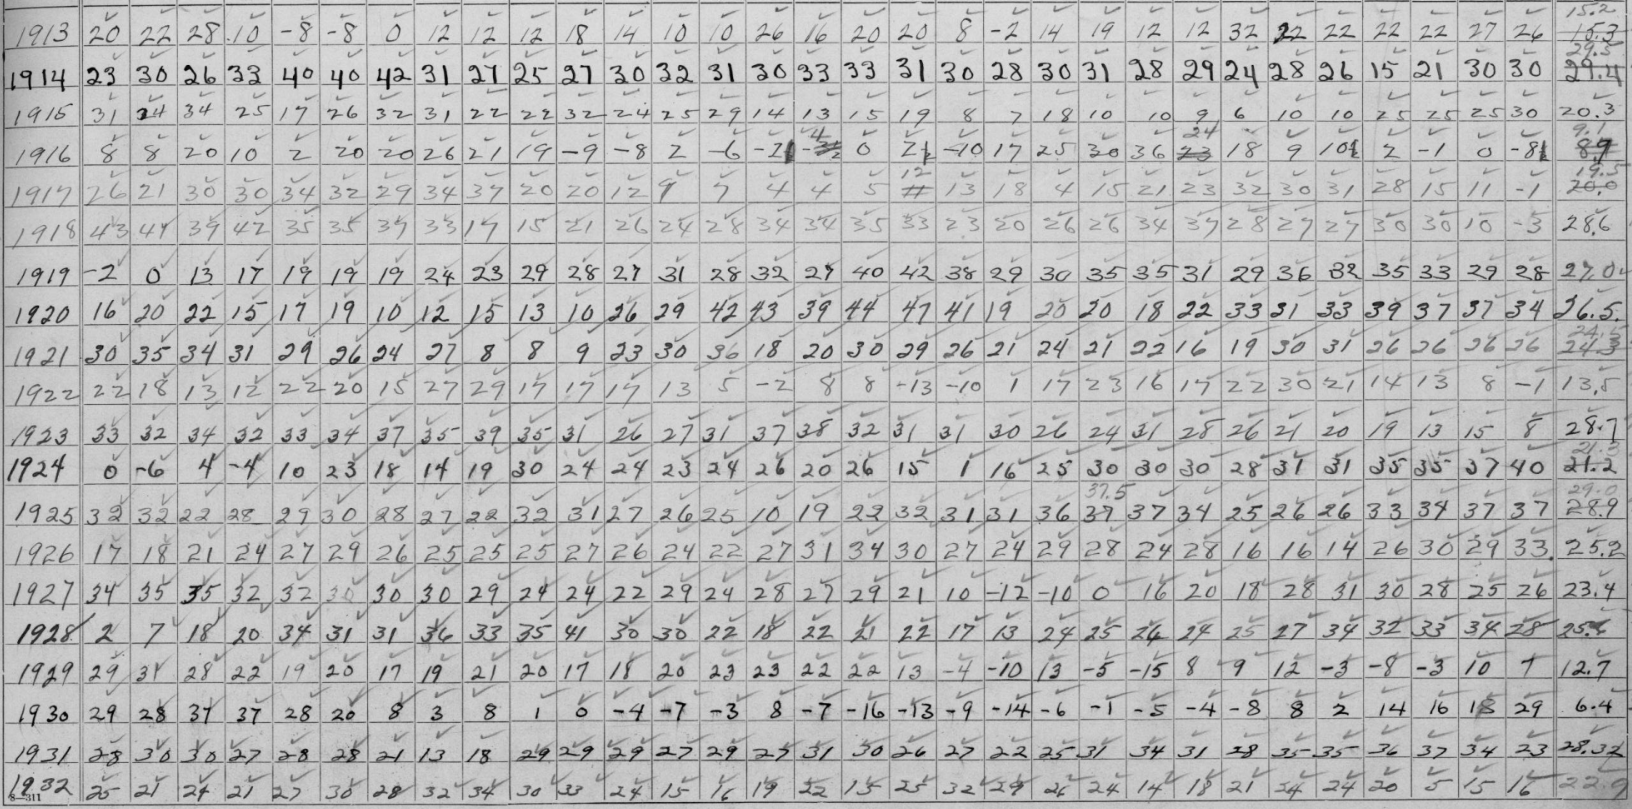 15.2
1913 20 22 28 10 -8 -8 0 12 12 12 18 14 10 10 26 16 20 20 8 -2 14 19 12 12 32 22 22 22 22 27 26 15.3
29.5
1914 23 30 26 33 40 40 42 31 27 25 27 30 32 31 30 33 33 31 30 28 30 31 28 29 24 28 26 15 21 30 30 29.4
1915 31 24 34 25 17 26 32 31 22 22 32 24 25 29 14 13 15 19 8 7 18 10 10 9 6 10 10 25 25 25 30 20.3
-4 24 9.1
1916 8 8 20 10 2 20 20 26 21 19 -9 -8 2 -6 -2 0 2 -10 17 25 30 36 23 18 9 10 2 -1 0 -8 8.9
12 19.5
1917 26 21 30 30 34 32 29 34 37 20 20 12 9 7 4 4 5 11 13 18 4 15 21 23 32 30 31 28 15 11 -1 20.0
1918 43 47 39 42 35 35 37 33 17 15 21 26 24 28 34 34 35 33 23 20 26 26 34 37 28 27 27 30 30 10 -3 28.6
1919 -2 0 13 17 19 19 19 24 23 29 28 27 31 28 32 27 40 42 38 29 30 35 35 31 29 36 32 35 33 29 28 27.0
1920 16 20 22 15 17 19 10 12 15 13 10 26 29 42 43 39 44 47 41 19 20 20 18 22 33 31 33 39 37 37 34 26.5
24.5
1921 30 35 34 31 29 26 24 27 8 8 9 23 30 36 18 20 30 29 26 21 24 21 22 16 19 30 31 26 26 26 26 24.3
1922 22 18 13 12 22 20 15 27 29 17 17 17 13 5 -2 8 8 -13 -10 1 17 23 16 17 22 30 21 14 13 8 -1 13.5
1923 33 32 34 32 33 34 37 35 39 35 31 26 27 31 37 38 32 31 31 30 26 24 31 28 26 21 20 19 13 15 8 28.7
21.3
1924 0 -6 4 -4 10 23 18 14 19 30 24 24 23 24 26 20 26 15 1 16 25 30 30 30 28 31 31 35 35 37 40 21.2
37.5 29.0
1925 32 32 22 28 29 30 28 27 22 32 31 27 26 25 10 19 22 32 31 31 36 37 37 34 25 26 26 33 34 37 37 28.9
1926 17 18 21 24 27 29 26 25 25 25 27 26 24 22 27 31 34 30 27 24 29 28 24 28 16 16 14 26 30 29 33 25.2
1927 34 35 35 32 32 30 30 30 29 24 24 22 29 24 28 27 29 21 10 -12 -10 0 16 20 18 28 31 30 28 25 26 23.4
1928 2 7 18 20 34 31 31 36 33 35 41 30 30 22 18 22 21 22 17 13 24 25 26 24 25 27 34 32 33 34 28
1929 29 31 28 22 19 20 17 19 21 20 17 18 20 23 23 22 22 13 -4 -10 13 -5 -15 8 9 12 -3 -8 -3 10 7 12.7
1930 29 28 37 37 28 20 8 3 8 1 0 -4 -7 -3 8 -7 -16 -13 -9 -14 -6 -1 -5 -4 -8 8 2 14 16 18 29 6.4
1931 28 30 30 27 28 28 21 13 18 29 29 29 27 29 27 31 30 26 27 22 25 31 34 31 28 35 35 36 37 34 23 28.32
1932 25 21 24 21 27 30 28 32 34 30 33 24 15 16 19 22 15 25 32 29 26 24 14 18 21 24 24 20 5 15 16 22.9